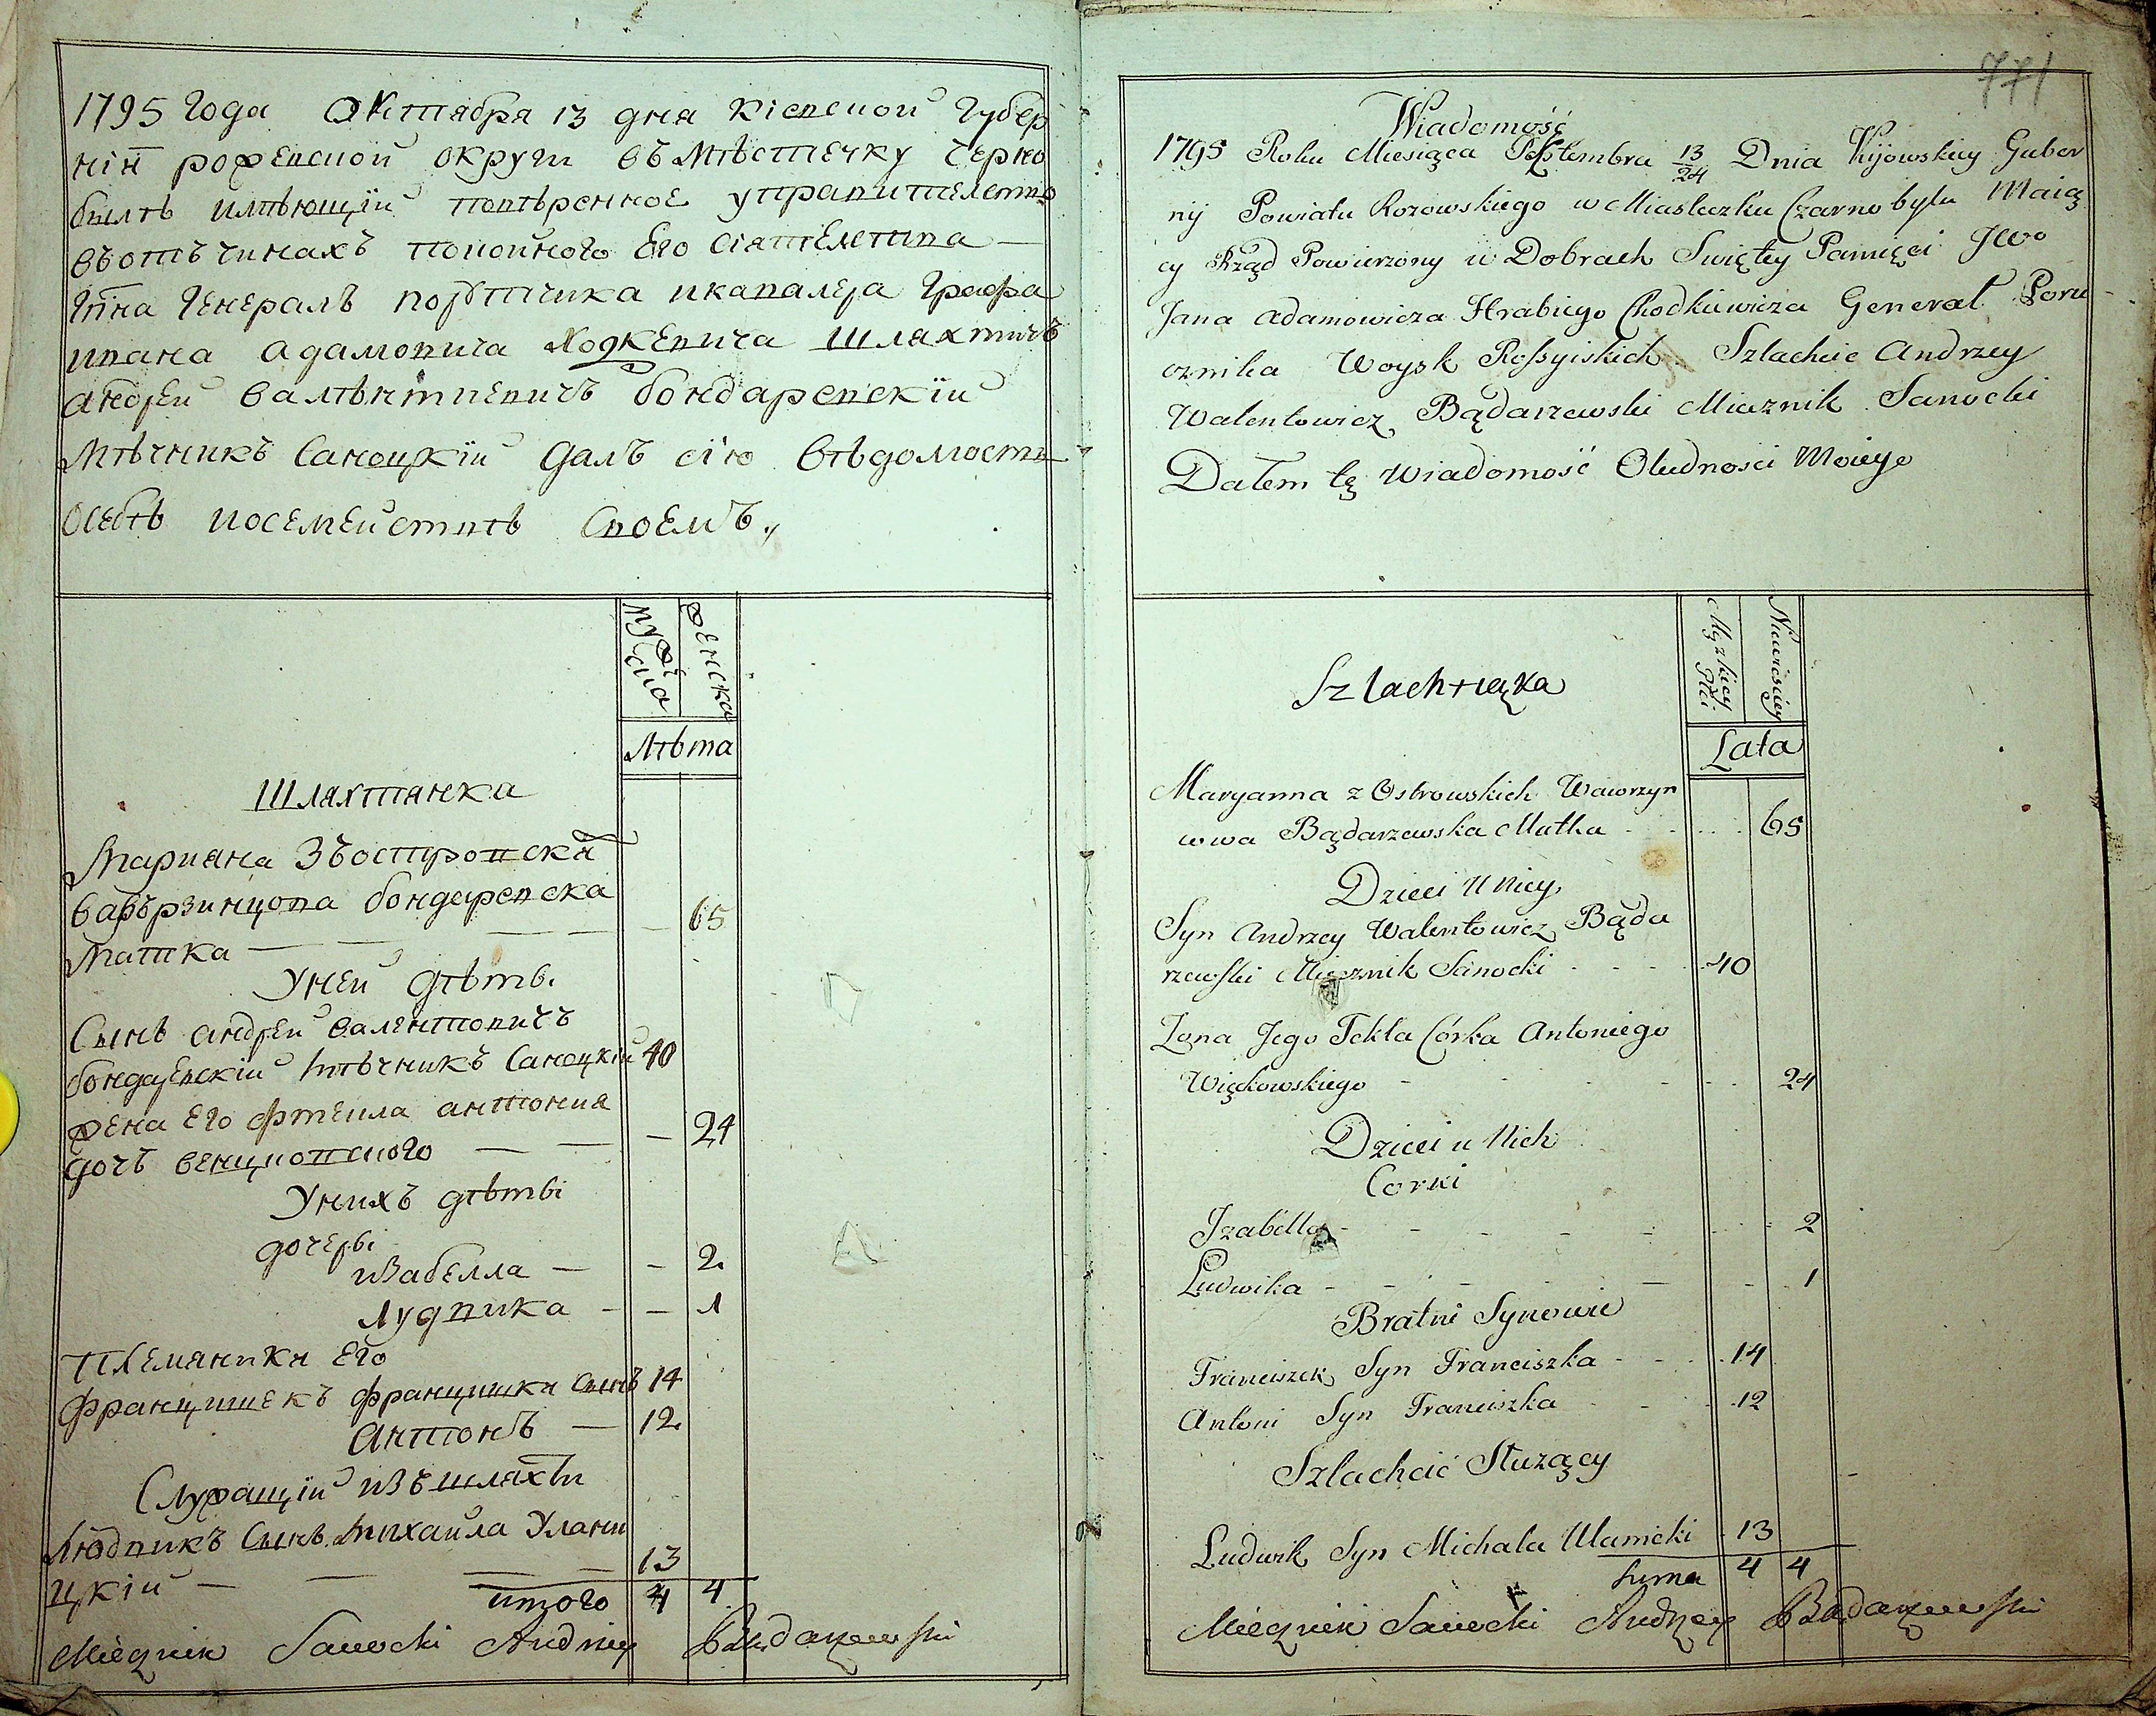 1795 Года Октября 13 дня Кіевской Губер
ніи Рожевской округи въ Мѣстечку Черно
былѣ имѣющій повѣренное управителство
въотъчинахъ покойного Его Сіятелства
Гпна Генералъ порутчика икавалера Графа
ивана адамовича Ходкевича шляхтичъ
андрей валѣнтиевичъ бондаревскій
Мѣчникъ Саноцкій далъ сію вѣдомость
осебѣ исемействѣ своемъ.,
мужеска
женска
Лѣта
Шляхтянка
Марияна Зъостровска
вавързинцова бондаревска
Матка — 65
Уней дѣти.
Сынъ андрей валентовичъ
бондаревскій Мѣчникъ Саноцкій 40
жена Его фтекла антония
дочъ венцковского — 24
Унихъ дѣти
дочеры
изабелла — 2
лудвика — 1
Племяники Его
францишекъ францишка сынъ 14
антонъ — 12
Служащій изъ шляхты
Людвикъ Сынъ Михаила Улани
цкій — 13
итого 4 4
Miecznik Sanocki Andrzey Bądarzewski
771
Wiadomość
1795 Roku Miesiąca 13/24 Dnia Kijowskiey Guber
nij Powiatu Rozowskiego w Miasteczku Czarnobylu Maią
cy Rząd Powierzony w Dobrach Swiętey Pamięci JWo
Jana Adamowicza Hrabiego Chodkiewicza Generał Poru
cznika Woysk Rossyiskich Szlachcic Andrzey
Walentowicz Bądarzewski Miecznik Sanocki
Dałem tę Wiadomość Oludnosci Moiego
Męzkiey Płci
Niewieściey
Lata
Szlachciązka
Maryanna z Ostrowskich Wawrzyn
cowa Bądarzewska Matka 65
Dzieci U Niey
Syn Andrzey Walentowicz Bąda
rzewski Miecznik Sanocki 40
Zona Jego Tekla Córka Antoniego
Więckowskiego 24
Dzieci u Nich
Corki
Jzabella 2
Ludwika 1
Bratni Synowie
Franciszek Syn Franciszka 14
Antoni Syn Franciszka 12
Szlachcić Służący
Ludwik Syn Michała Ulanicki 13
Suma 4 4
Miecznik Sanocki Andrzey Bądarzewski